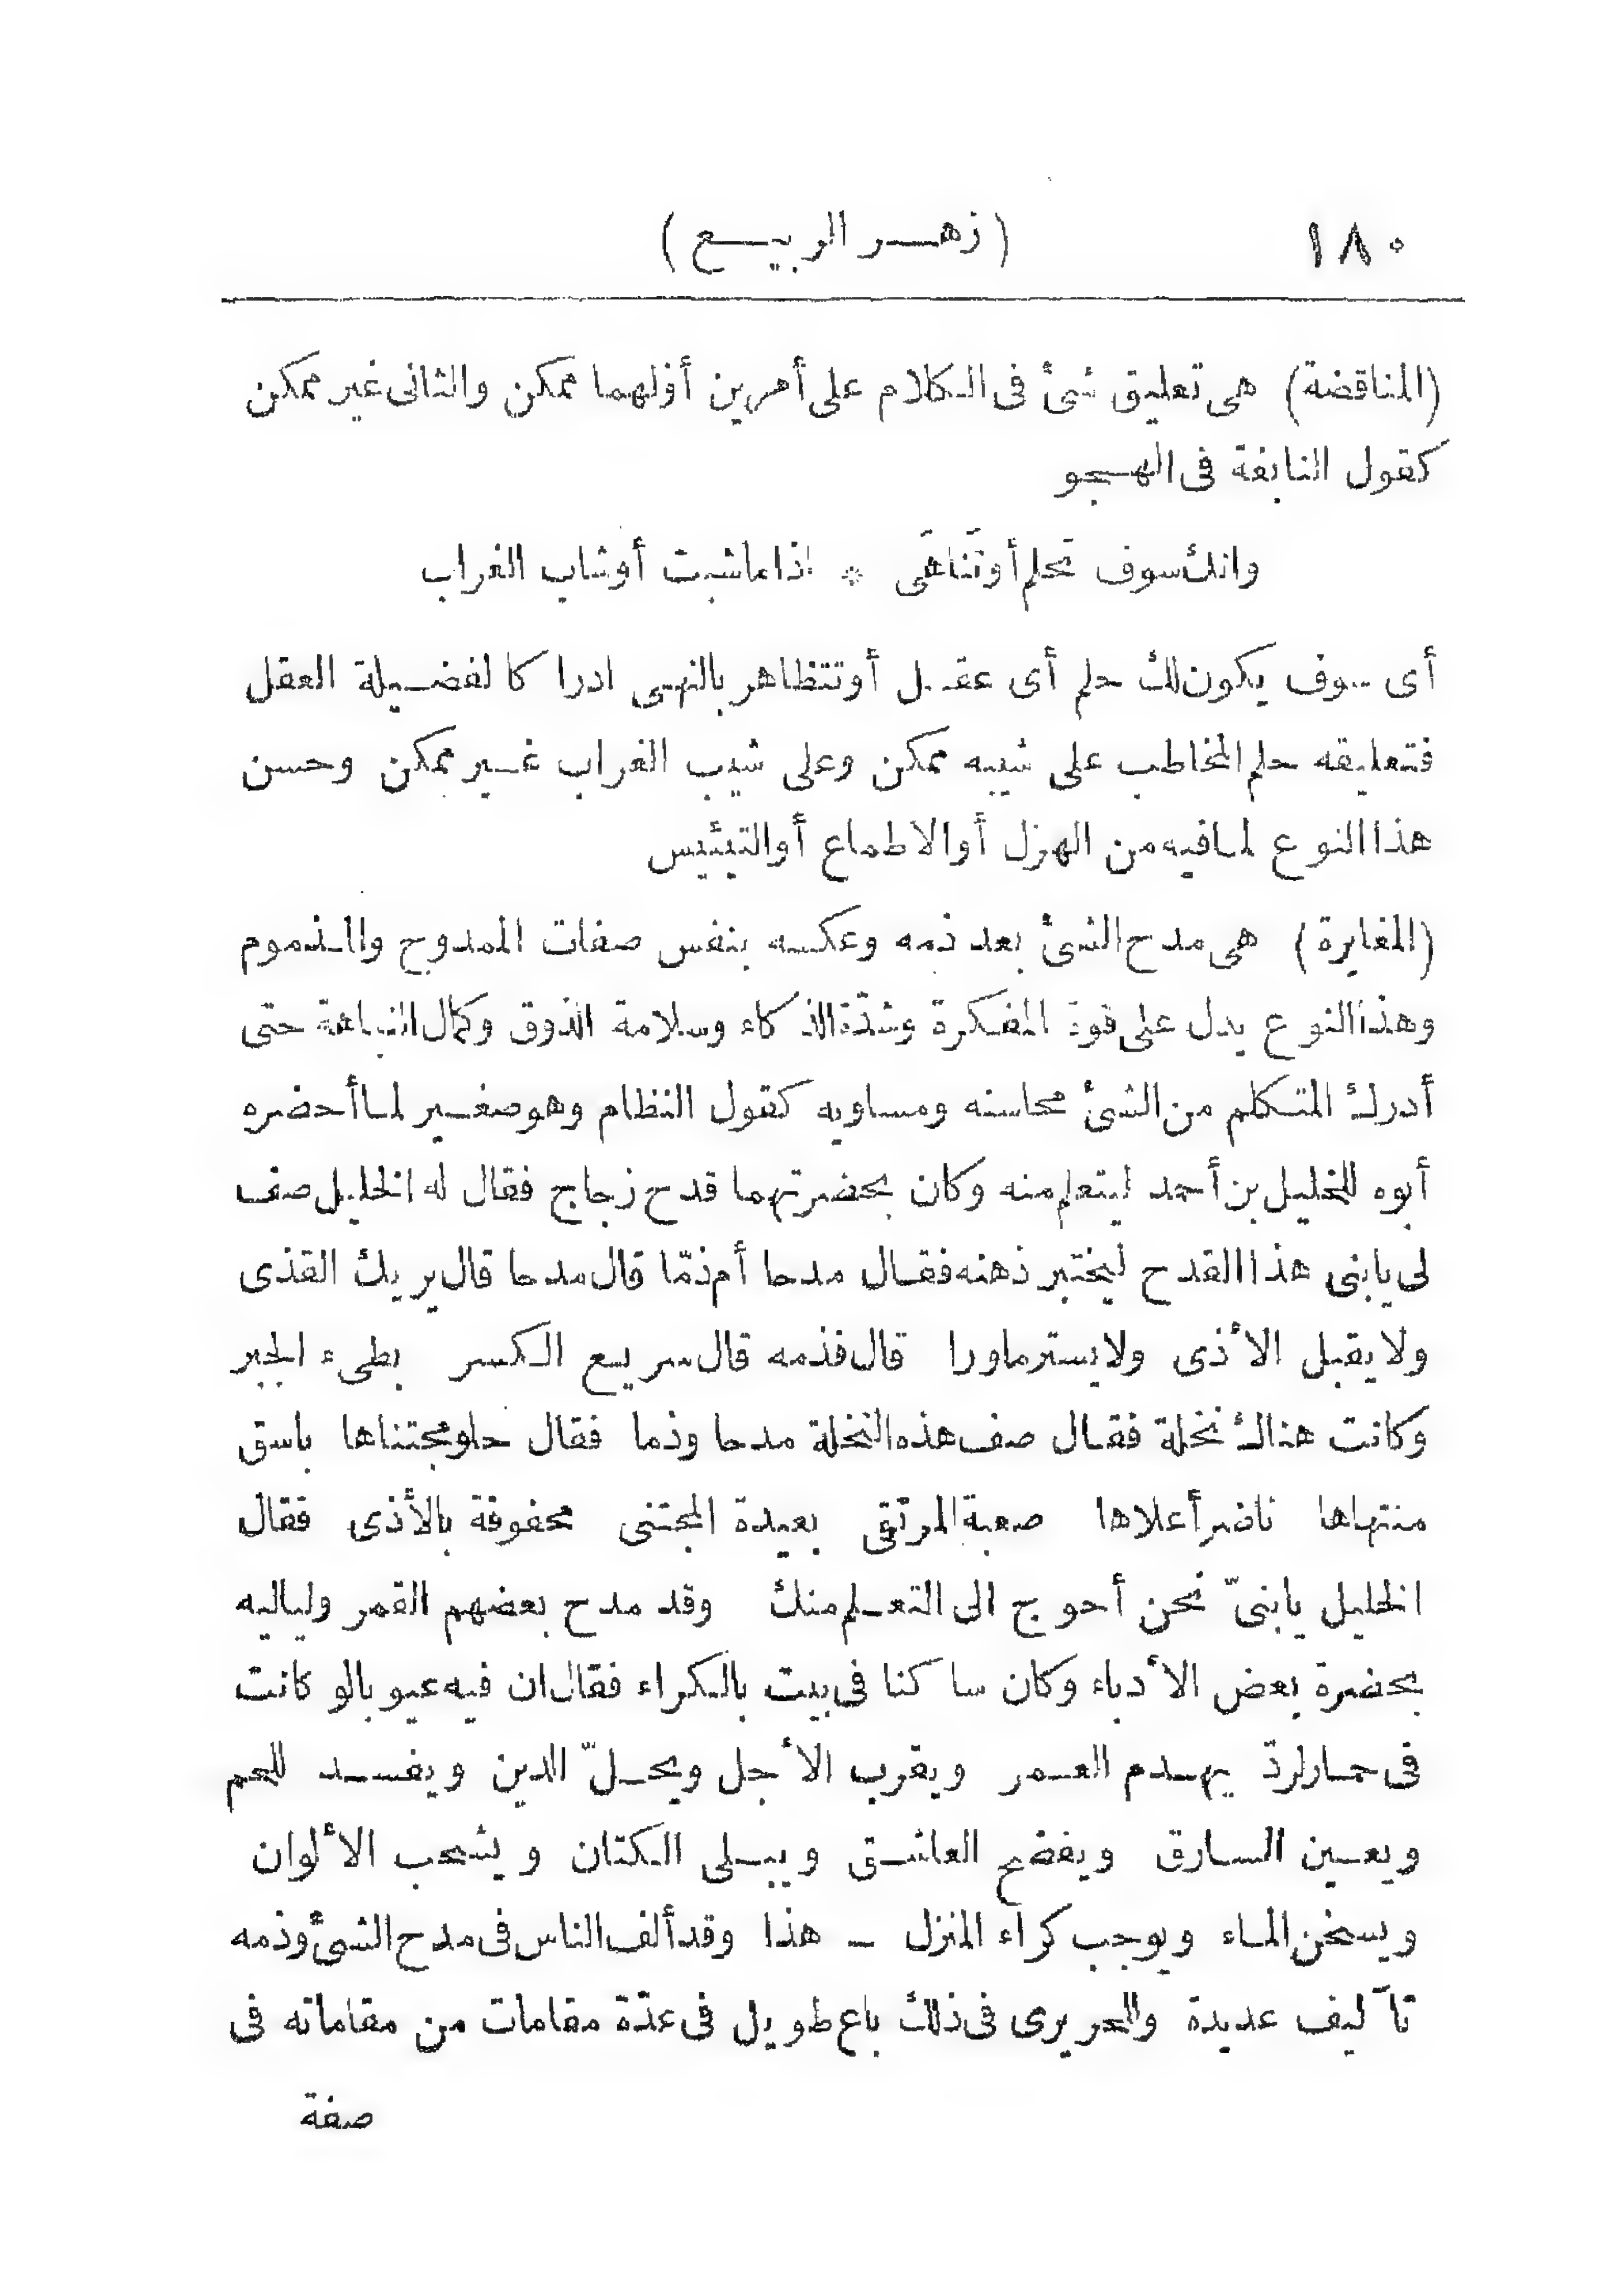 ١٨٠ (زهر الربيع)
(المناقضة) هى تعليق شئ فى الكلام على أمرين أولهما ممكن والثانى غير ممكن
كقول النابغة فى الهجو
وانك سوف تحلم أو تَناهَى * اذا ما شبت أو شاب الغراب
أى سوف يكون لك حلم أى عقل أو تتظاهر بالنهى ادراكا لفضيلة العقل
فتعليقه حلم المخاطب على شيبه ممكن وعلى شيب الغراب غير ممكن وحسن
هذا النوع لما فيه من الهزل أو الاطماع أو التيئيس
(المغايرة) هى مدح الشئ بعد ذمه وعكسه بنفس صفات الممدوح والمذموم
وهذا النوع يدل على قوة المفكرة وشدّة الذكاء وسلامة الذوق وكمال النباهة حتى
أدرك المتكلم من الشئ محاسنه ومساويه كقول النظام وهو صغير لما أحضره
أبوه للخليل بن أحمد ليتعلم منه وكان بحضرتهما قدح زجاج فقال له الخليل صف
لى يا بنى هذا القدح ليختبر ذهنه فقال مدحا أم ذمّا قال مدحا قال يريك القذى
ولا يقبل الأذى ولا يستر ماورا قال فذمه قال سريع الكسر بطىء الجبر
وكانت هناك نخلة فقال صف هذه النخلة مدحا وذما فقال حلو مجتناها باسق
منتهاها ناضر أعلاها صعبة المرتقى بعيدة المجتنى محفوفة بالأذى فقال
الخليل يا بنىّ نحن أحوج الى التعلم منك وقد مدح بعضهم القمر ولياليه
بحضرة بعض الأدباء وكان ساكنا فى بيت بالكراء فقال ان فيه عيوبا لو كانت
فى حمار لردّ يهدم العمر ويقرب الأجل ويحلّ الدين ويفسد اللحم
ويعين السارق ويفضح العاشق ويبلى الكتان ويشحب الألوان
ويسخن الماء ويوجب كراء المنزل - هذا وقد ألف الناس فى مدح الشئ وذمه
تآليف عديدة وللحريرى فى ذلك باع طويل فى عدّة مقامات من مقاماته فى
صفة